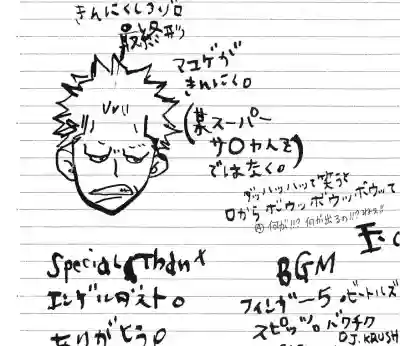 きんにくしろりロ
最終形
マユゲが
きんにく。
(某スーパー
サロヤんを
ではなく。)
ダッハッハッで笑うと
口からボウッボウッボウッて
何が!!?何が出るの!!?
玉。
Special Thanx
エンゲルダスト。
ありがとう。
BGM
フィンガー5。ビートルズ
スピッツ。バクチク
DJ.KRUSH